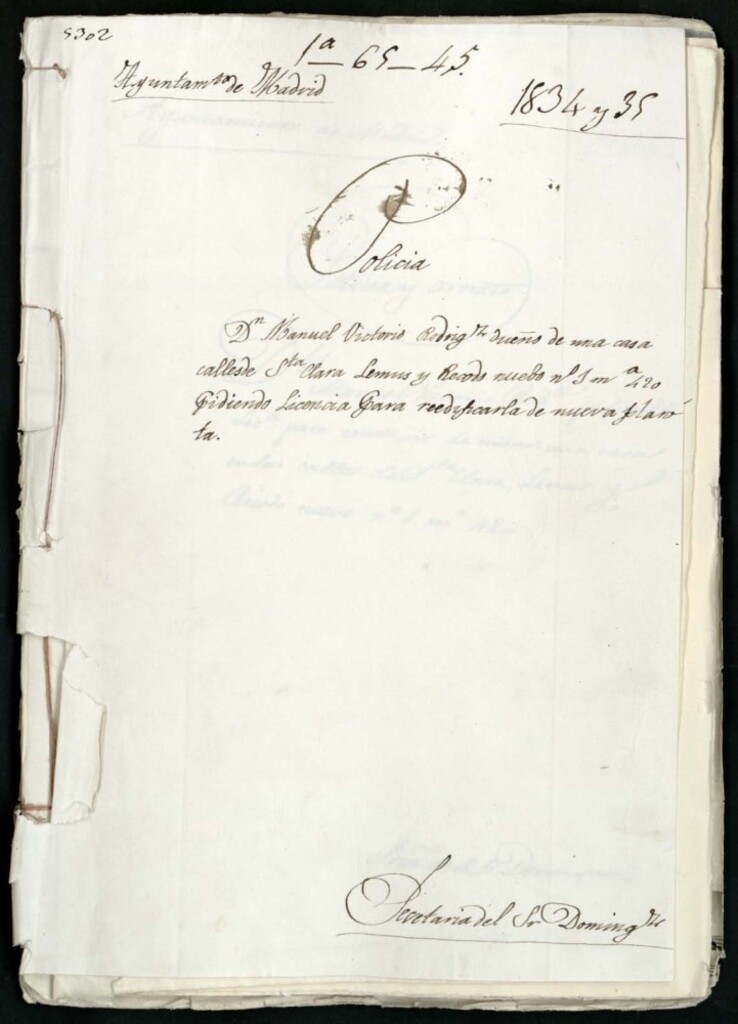 5302
1ª — 65 — 45.
Ayuntamto de Madrid
1834 y 35
Policia
Dn Manuel Victorio Rodrigz dueño de una casa
calles de Sta Clara Lemus y Recodo nuebo nº 1 mª 420
Pidiendo Licencia Para reedificarla de nueva plan-
ta.
Secretaria del Sr Domingz